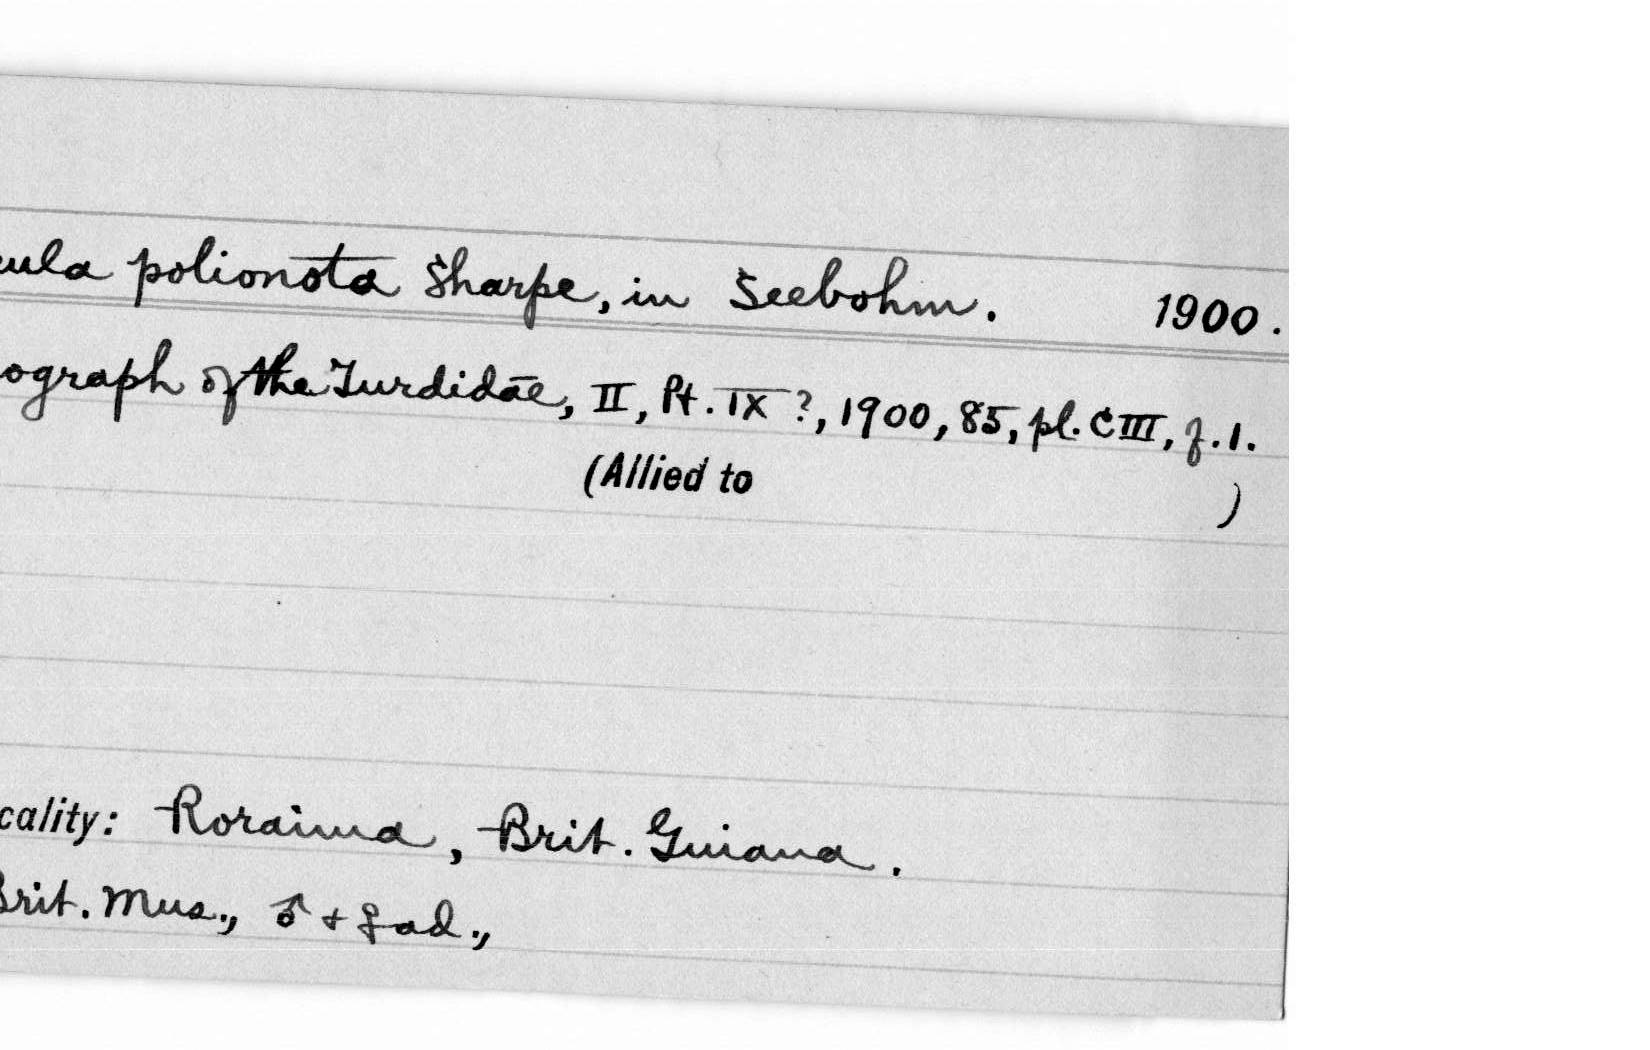 ula polionota Sharpe, in Seebohm. 1900.
ograph of the Turdidae, II, Pt. IX ?, 1900, 85, pl. CIII, f. 1.
(Allied to )
cality: Roraima, Brit. Guiana.
Brit. Mus., ♂ + ♀ ad.,